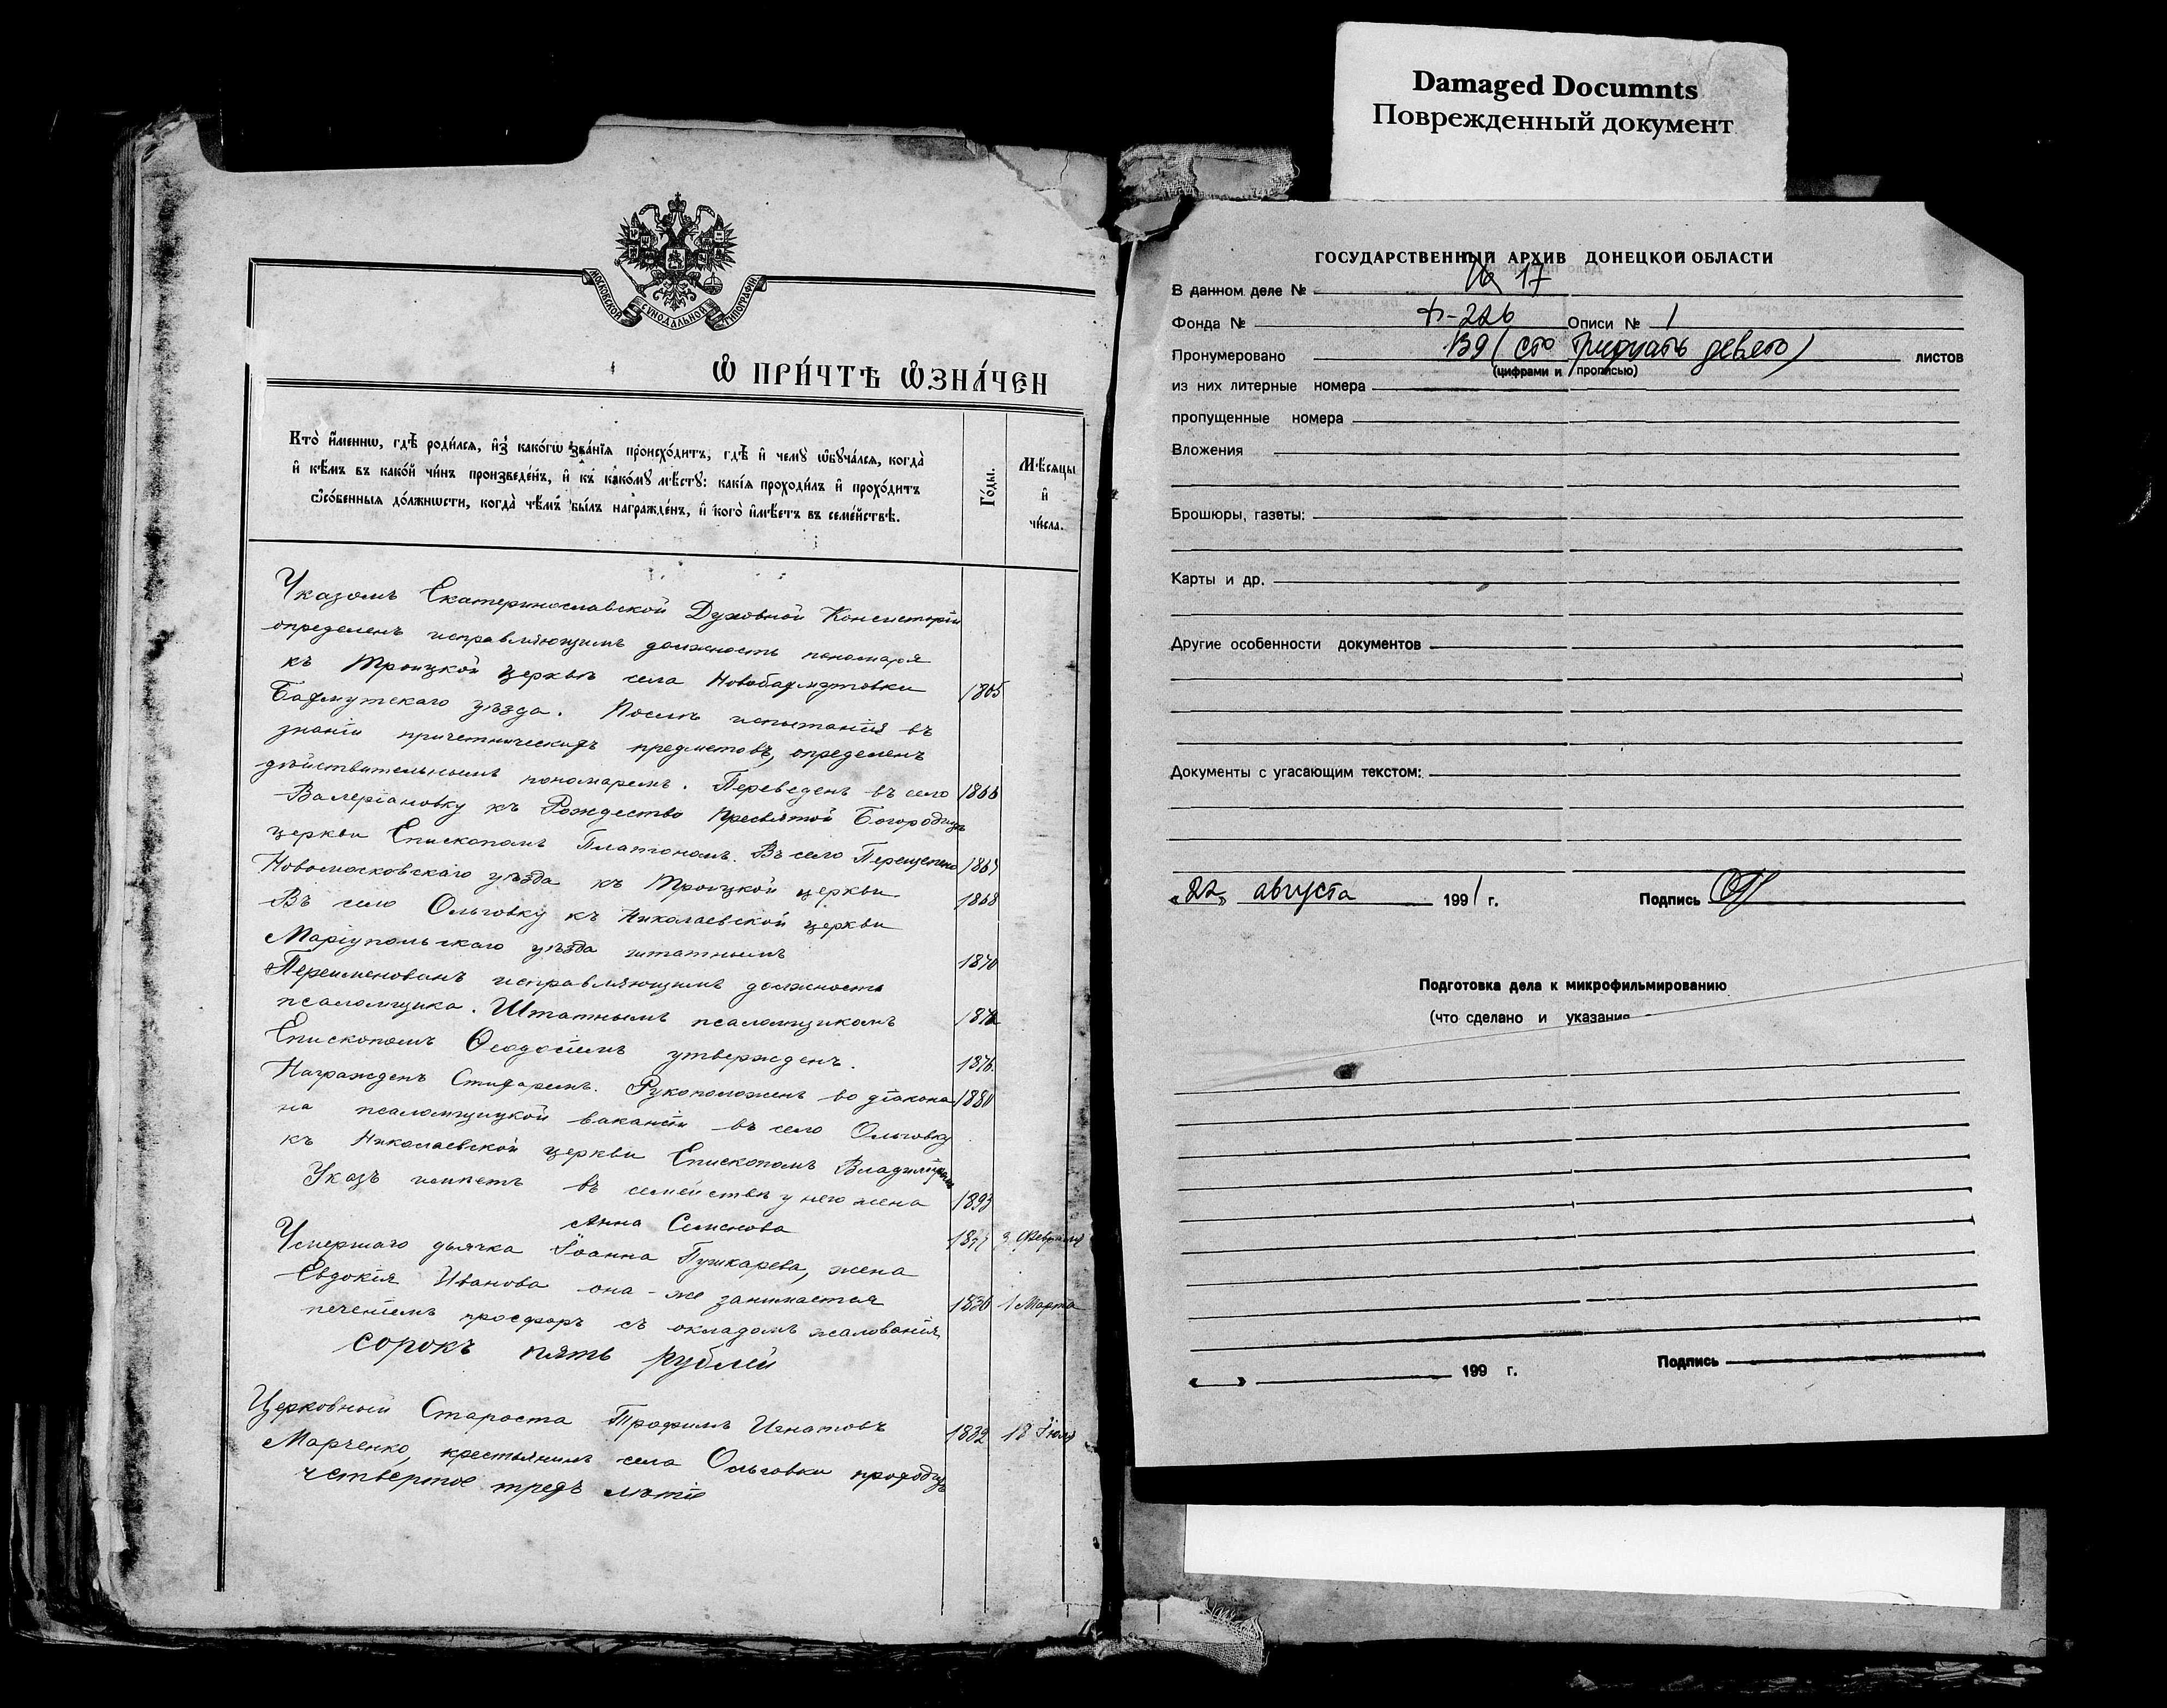 МОСКОВСКОЙ СѴНОДАЛЬНОЙ ТИПОГРАФИИ
Ѡ ПРИ́ЧТѢ ѠЗНА́ЧЕН
Кто̀ и҆́меннѡ, гдѣ̀ роди́лся, и҆з̾ како́гѡ зва́нїя происхо́дитъ, гдѣ̀ и҆ чемꙋ̀ ѡ҆бꙋча́лся, когда̀
и҆ кѣ́мъ въ како́й чи́нъ произведе́нъ, и҆ къ како́мꙋ мѣ́стꙋ: какі́я проходи́лъ и҆ прохо́дитъ
ѻ҆со́бенныя до́лжнѡсти, когда̀ чѣ́мъ бы́лъ награжде́нъ, и҆ кого̀ и҆мѣ́етъ въ семе́йствѣ.
Го́ды.
Мѣ́сяцы
и҆
чи́сла.
Указомъ Екатеринославской Духовной Консисторіи
опредѣленъ исправляющимъ должность пономаря
къ Троицкой церкви села Новобахмутовки 1865
Бахмутскаго уѣзда. Послѣ испытанія въ
знаніи причетническихъ предметовъ, опредѣленъ
дѣйствительнымъ пономаремъ. Переведенъ въ село 1866
Валеріановку къ Рождество Пресвятой Богородицы
церкви Епископомъ Платономъ. Въ село Перещепино 1867
Новомосковскаго уѣзда къ Троицкой церкви. 1868
Въ село Ольговку къ Николаевской церкви
Маріупольскаго уѣзда штатнымъ 1870
Переименованъ исправляющимъ должность
псаломщика. Штатнымъ псаломщикомъ 1872
Епископомъ Ѳеодосіемъ утвержденъ. 1876.
Награжденъ Стихаремъ. Рукоположенъ во діакона 1880
на псаломщицкой вакансіи въ село Ольговку
къ Николаевской церкви Епископомъ Владиміромъ
Указъ имѣетъ въ семействѣ у него жена 1893
Анна Семенова 1877 3 Февраля
Умершаго дьячка Іоанна Пушкарева, жена
Евдокія Иванова она-же занимается 1836 1 Марта
печеніемъ просфоръ съ окладомъ жалованія
сорокъ пять рублей
Церковный Староста Трофимъ Игнатовъ 1882 18 Іюля
Марченко, крестьянинъ села Ольговки проходитъ
четвертое трехъ лѣтіе
Damaged Documnts
Поврежденный документ
ГОСУДАРСТВЕННЫЙ АРХИВ ДОНЕЦКОЙ ОБЛАСТИ
В данном деле № 17
Фонда № Ф-226 Описи № 1
Пронумеровано 139 (сто тридцать девять) листов
(цифрами и прописью)
из них литерные номера
пропущенные номера
Вложения
Брошюры, газеты:
Карты и др.
Другие особенности документов
Документы с угасающим текстом:
«22» августа 1991 г. Подпись
Подготовка дела к микрофильмированию
(что сделано и указания
« » 199 г. Подпись